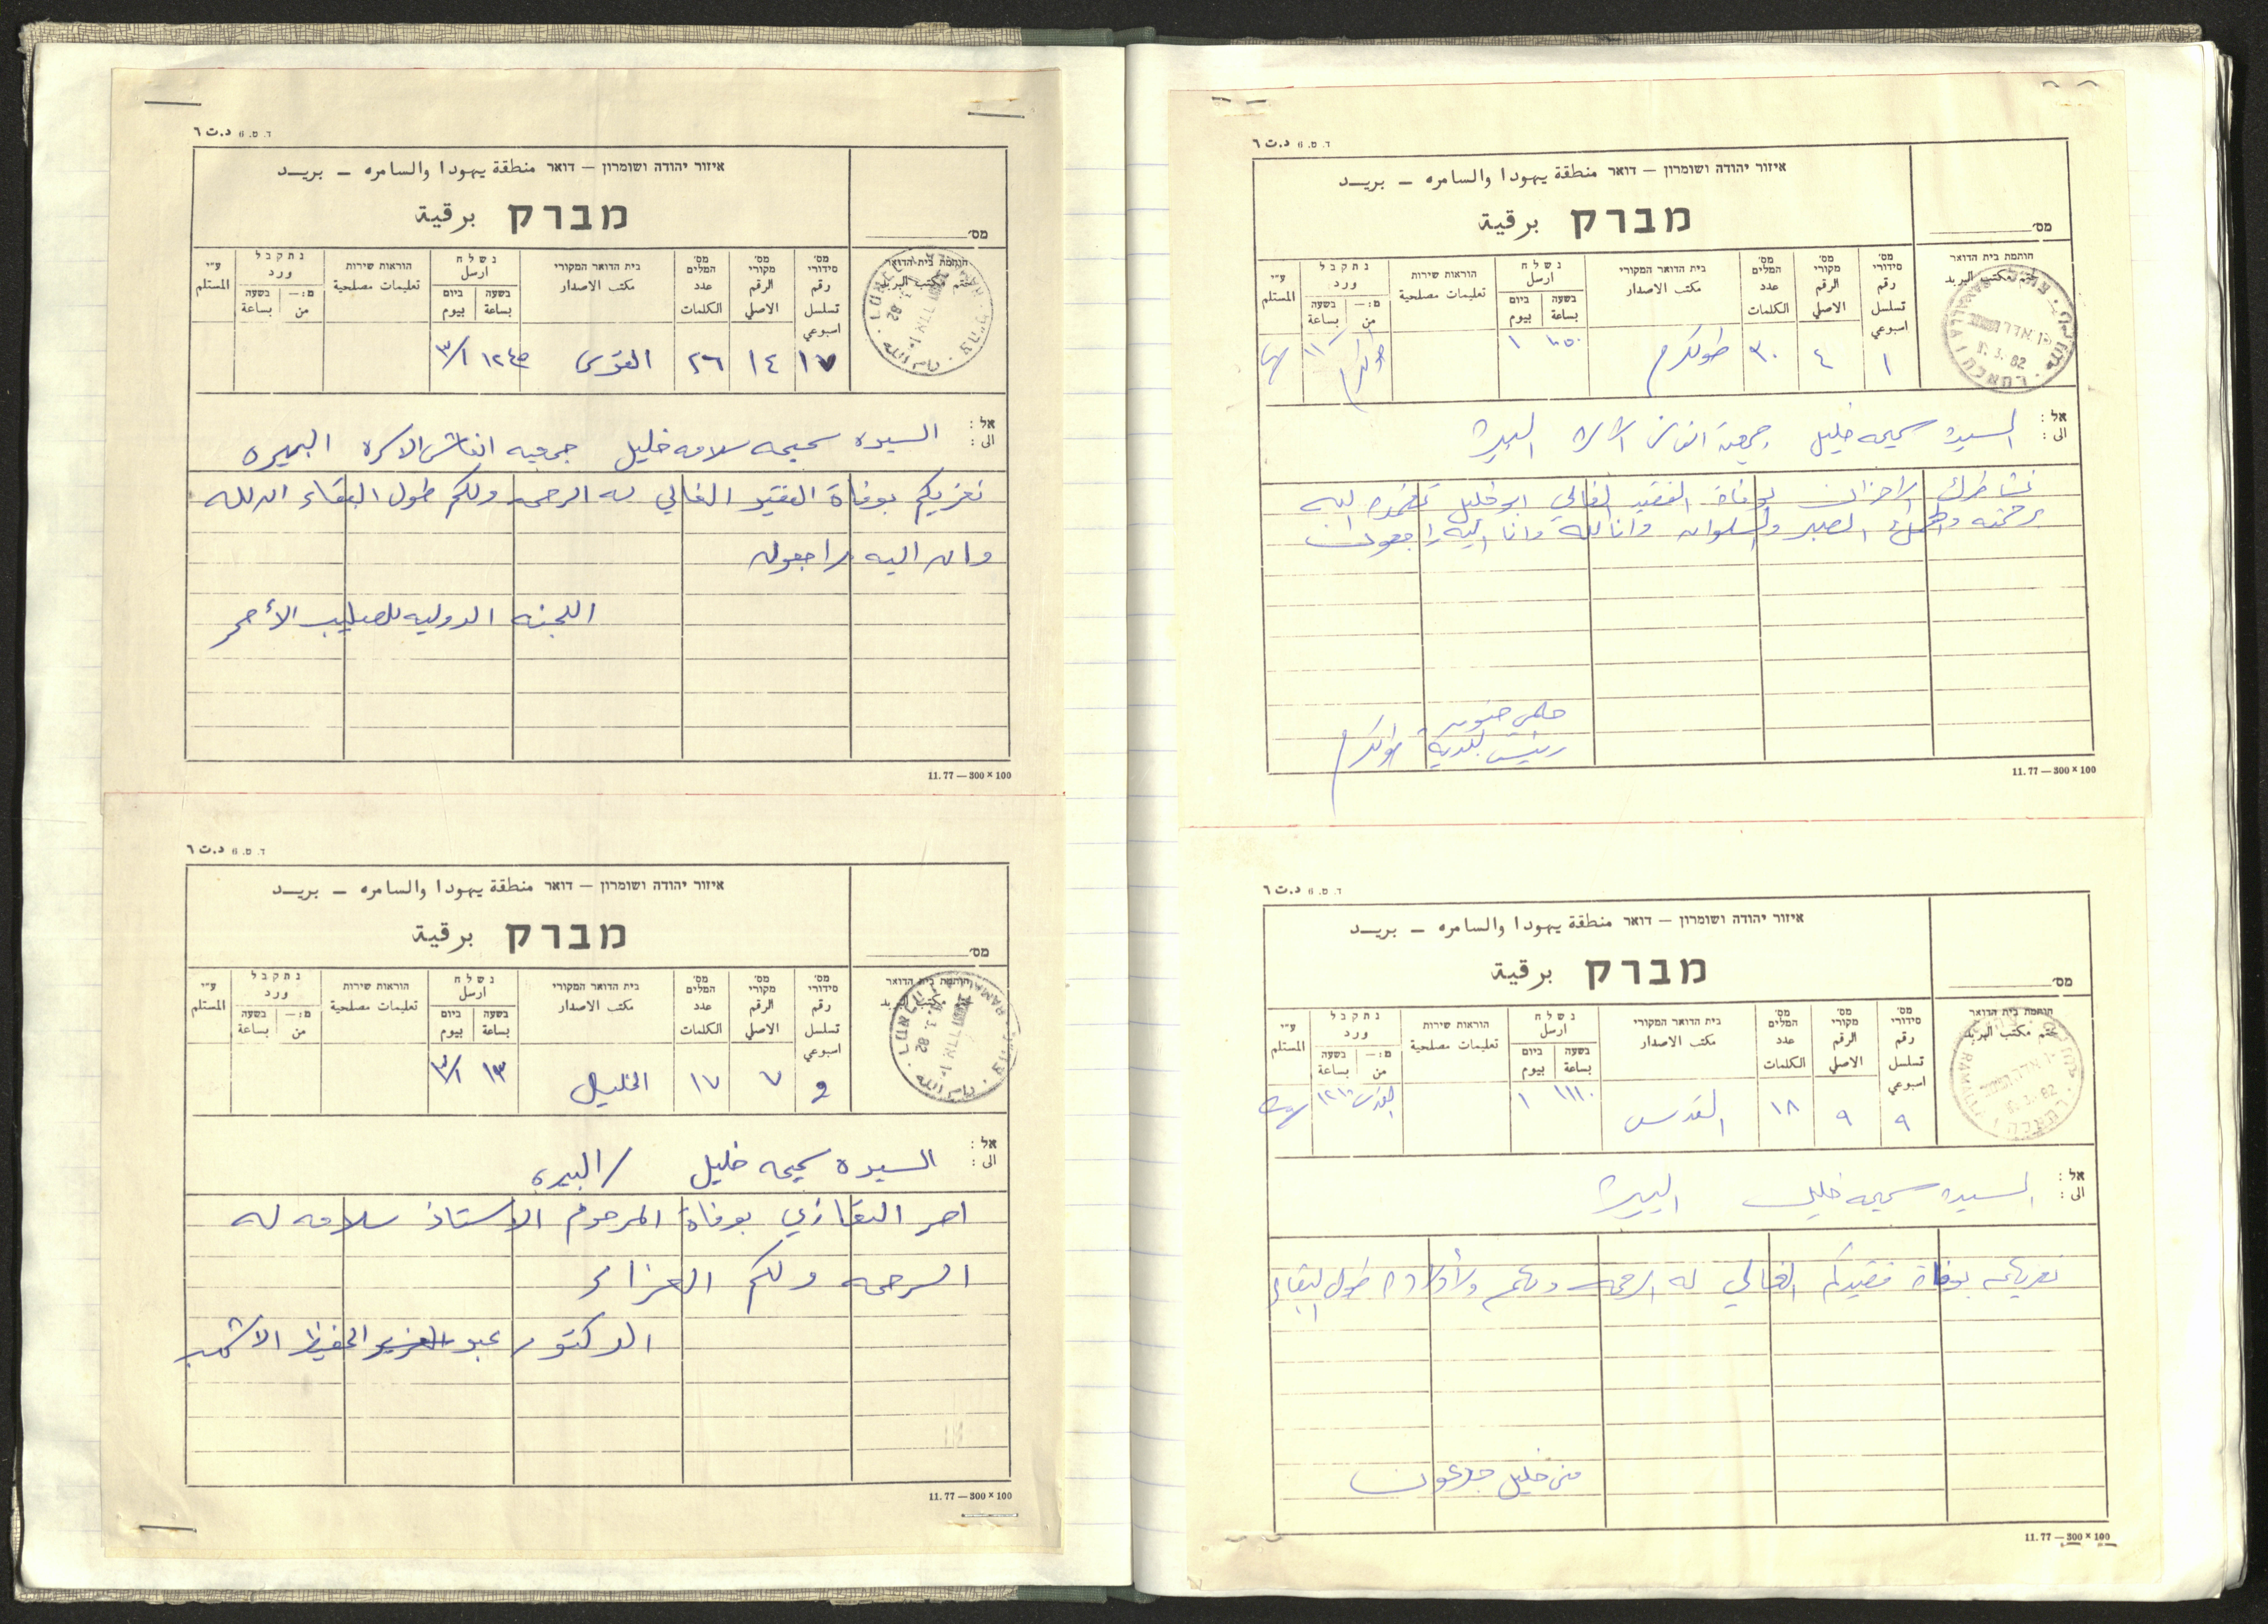 ד. ס. 6 د.ت ٦
איזור יהודה ושומרון — דואר منطقة يهودا والسامره — بريـد
מברק برقية
מס׳
חותמת בית הדואר
ختم مكتب البريد
מס׳ סידורי رقم تسلسل اسبوعي
מס׳ מקורי الرقم الاصلي
מס׳ המלים عدد الكلمات
בית הדואר המקורי مكتب الاصدار
נשלח ارسل
בשעה بساعة
ביום بيوم
הוראות שירות تعليمات مصلحية
נתקבל ورد
מ:— من
בשעה بساعة
ע״י المستلم
١٧ ١٤ ٢٦ القدس ١٢٤٥ ٣/١
אל :
الى :
السيده سميحه سلامه خليل جمعيه انعاش الاسره البيره
نعزيكم بوفاة الفقيد الغالي له الرحمه ولكم طول البقاء انا لله
وانا اليه راجعون
اللجنه الدوليه للصليب الأحمر
11. 77 — 300 × 100
ד. ס. 6 د.ت ٦
איזור יהודה ושומרון — דואר منطقة يهودا والسامره — بريـد
מברק برقية
מס׳
חותמת בית הדואר
ختم مكتب البريد
מס׳ סידורי رقم تسلسل اسبوعي
מס׳ מקורי الرقم الاصلي
מס׳ המלים عدد الكلمات
בית הדואר המקורי مكتب الاصدار
נשלח ارسل
בשעה بساعة
ביום بيوم
הוראות שירות تعليمات مصلحية
נתקבל ورد
מ:— من
בשעה بساعة
ע״י المستلم
٧ ١٧ الخليل ١٣ ٣/١
אל :
الى :
السيده سميحه خليل / البيره
احر التعازي بوفاة المرحوم الاستاذ سلامه له
الرحمه ولكم العزاء
الدكتور عبد العزيز الحفيظ الاشهب
11. 77 — 300 × 100
ד. ס. 6 د.ت ٦
איזור יהודה ושומרון — דואר منطقة يهودا والسامره — بريـد
מברק برقية
מס׳
חותמת בית הדואר
ختم مكتب البريد
מס׳ סידורי رقم تسلسل اسبوعي
מס׳ מקורי الرقم الاصلي
מס׳ המלים عدد الكلمات
בית הדואר המקורי مكتب الاصدار
נשלח ارسل
בשעה بساعة
ביום بيوم
הוראות שירות تعليمات مصلحية
נתקבל ورد
מ:— من
בשעה بساعة
ע״י المستلم
١ ٤ ٣٠ طولكرم ١ طولكرم
אל :
الى :
السيدة سميحه خليل جمعية انعاش الاسرة البيرة
نشاطرك الاحزان بوفاة الفقيد الغالي ابو خليل تغمده الله
برحمته والهمك الصبر والسلوان وانا لله وانا اليه راجعون
حلمي حنون
رئيس بلدية طولكرم
11. 77 — 300 × 100
ד. ס. 6 د.ت ٦
איזור יהודה ושומרון — דואר منطقة يهودا والسامره — بريـد
מברק برقية
מס׳
חותמת בית הדואר
ختم مكتب البريد
מס׳ סידורי رقم تسلسل اسبوعي
מס׳ מקורי الرقم الاصلي
מס׳ המלים عدد الكلمات
בית הדואר המקורי مكتب الاصدار
נשלח ارسل
בשעה بساعة
ביום بيوم
הוראות שירות تعليمات مصلحية
נתקבל ورد
מ:— من
בשעה بساعة
ע״י المستلم
٩ ٩ ١٨ القدس ١١١٠ ١ القدس ١٢١٠
אל :
الى :
السيدة سميحه خليل البيرة
نعزيكم بوفاة فقيدكم الغالي له الرحمه ولكم ولأولاده طول البقاء
منى خليل جدعون
11. 77 — 300 × 100